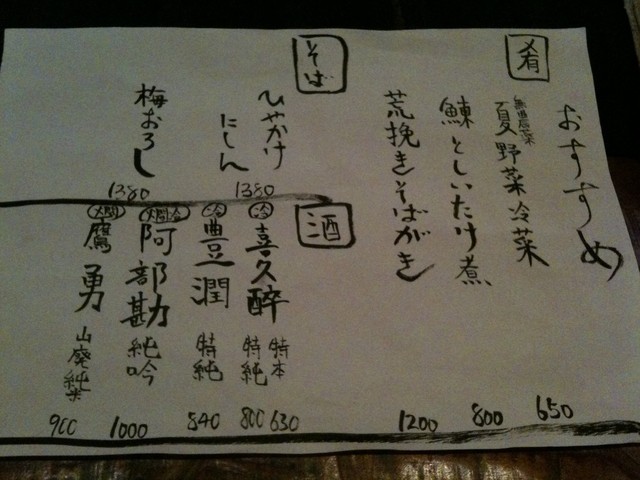 おすすめ
肴
無農薬
夏野菜冷菜 650
鰊としいたけ煮 800
荒挽きそばがき 1200
そば
ひやかけ
にしん 1380
梅おろし 1380
酒
冷 喜久酔 特本 630
特純 800
冷 豊潤 特純 840
燗 冷 阿部勘 純吟 1000
燗 鷹勇 山廃純米 900